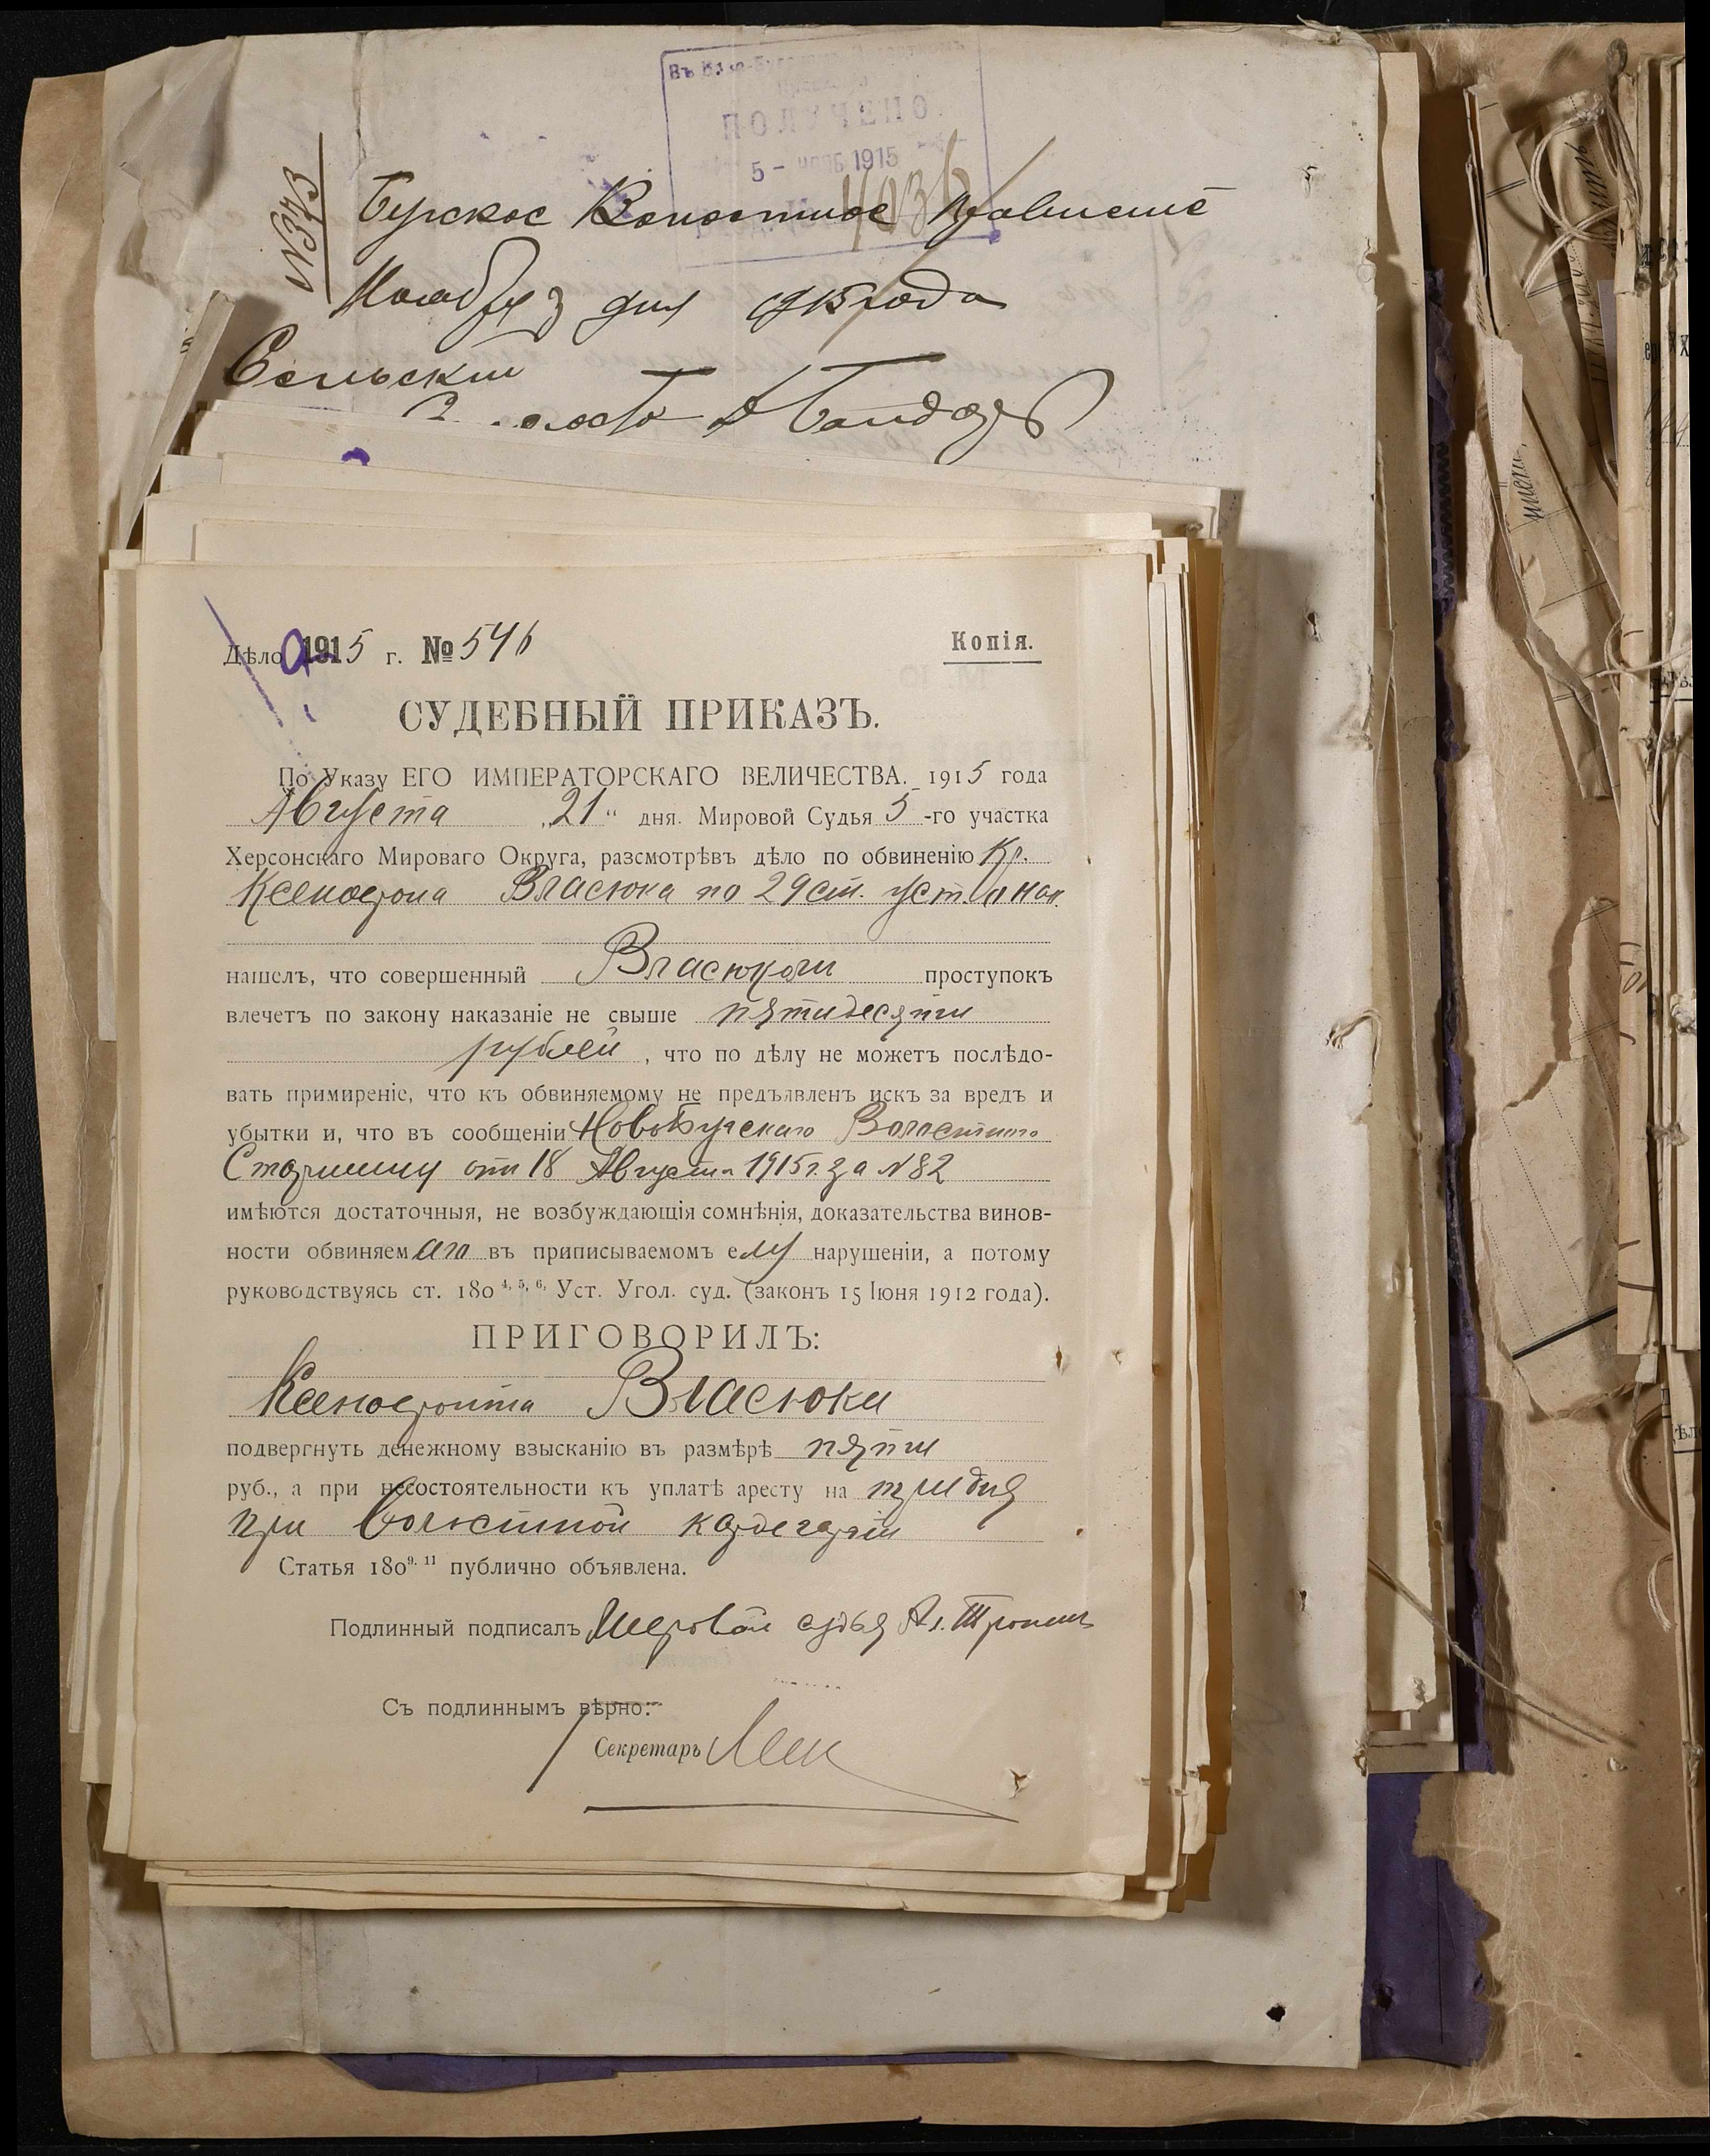 ПОЛУЧЕНО
5 - нояб 1915
№373
Бугское Волостное Правление
Ноября 3 дня 1915 года
Сельский
Дѣло 1915 г. № 546
Копія.
СУДЕБНЫЙ ПРИКАЗЪ.
По Указу ЕГО ИМПЕРАТОРСКАГО ВЕЛИЧЕСТВА. 1915 года
Августа „21“ дня. Мировой Судья 5-го участка
Херсонскаго Мироваго Округа, разсмотрѣвъ дѣло по обвиненію Кр.
Ксенофона Власюка по 29 ст. уст. о нак.
нашелъ, что совершенный Власюком проступокъ
влечетъ по закону наказаніе не свыше пятидесяти
рублей, что по дѣлу не можетъ послѣдо-
вать примиреніе, что къ обвиняемому не предъявленъ искъ за вредъ и
убытки и, что въ сообщеніи НовоБугскаго Волостного
Старшины от 18 Августа 1915 г. за №82
имѣются достаточныя, не возбуждающія сомнѣнія, доказательства винов-
ности обвиняемаго въ приписываемомъ ему нарушеніи, а потому
руководствуясь ст. 180 4, 5, 6, Уст. Угол. суд. (законъ 15 Іюня 1912 года).
ПРИГОВОРИЛЪ:
Ксенофонта Власюка
подвергнуть денежному взысканію въ размѣрѣ пяти
руб., а при несостоятельности къ уплатѣ аресту на три дня
при волостной кордегардіи
Статья 180 9. 11 публично объявлена.
Подлинный подписалъ Мировой судья Ал.
Съ подлиннымъ вѣрно:
Секретарь